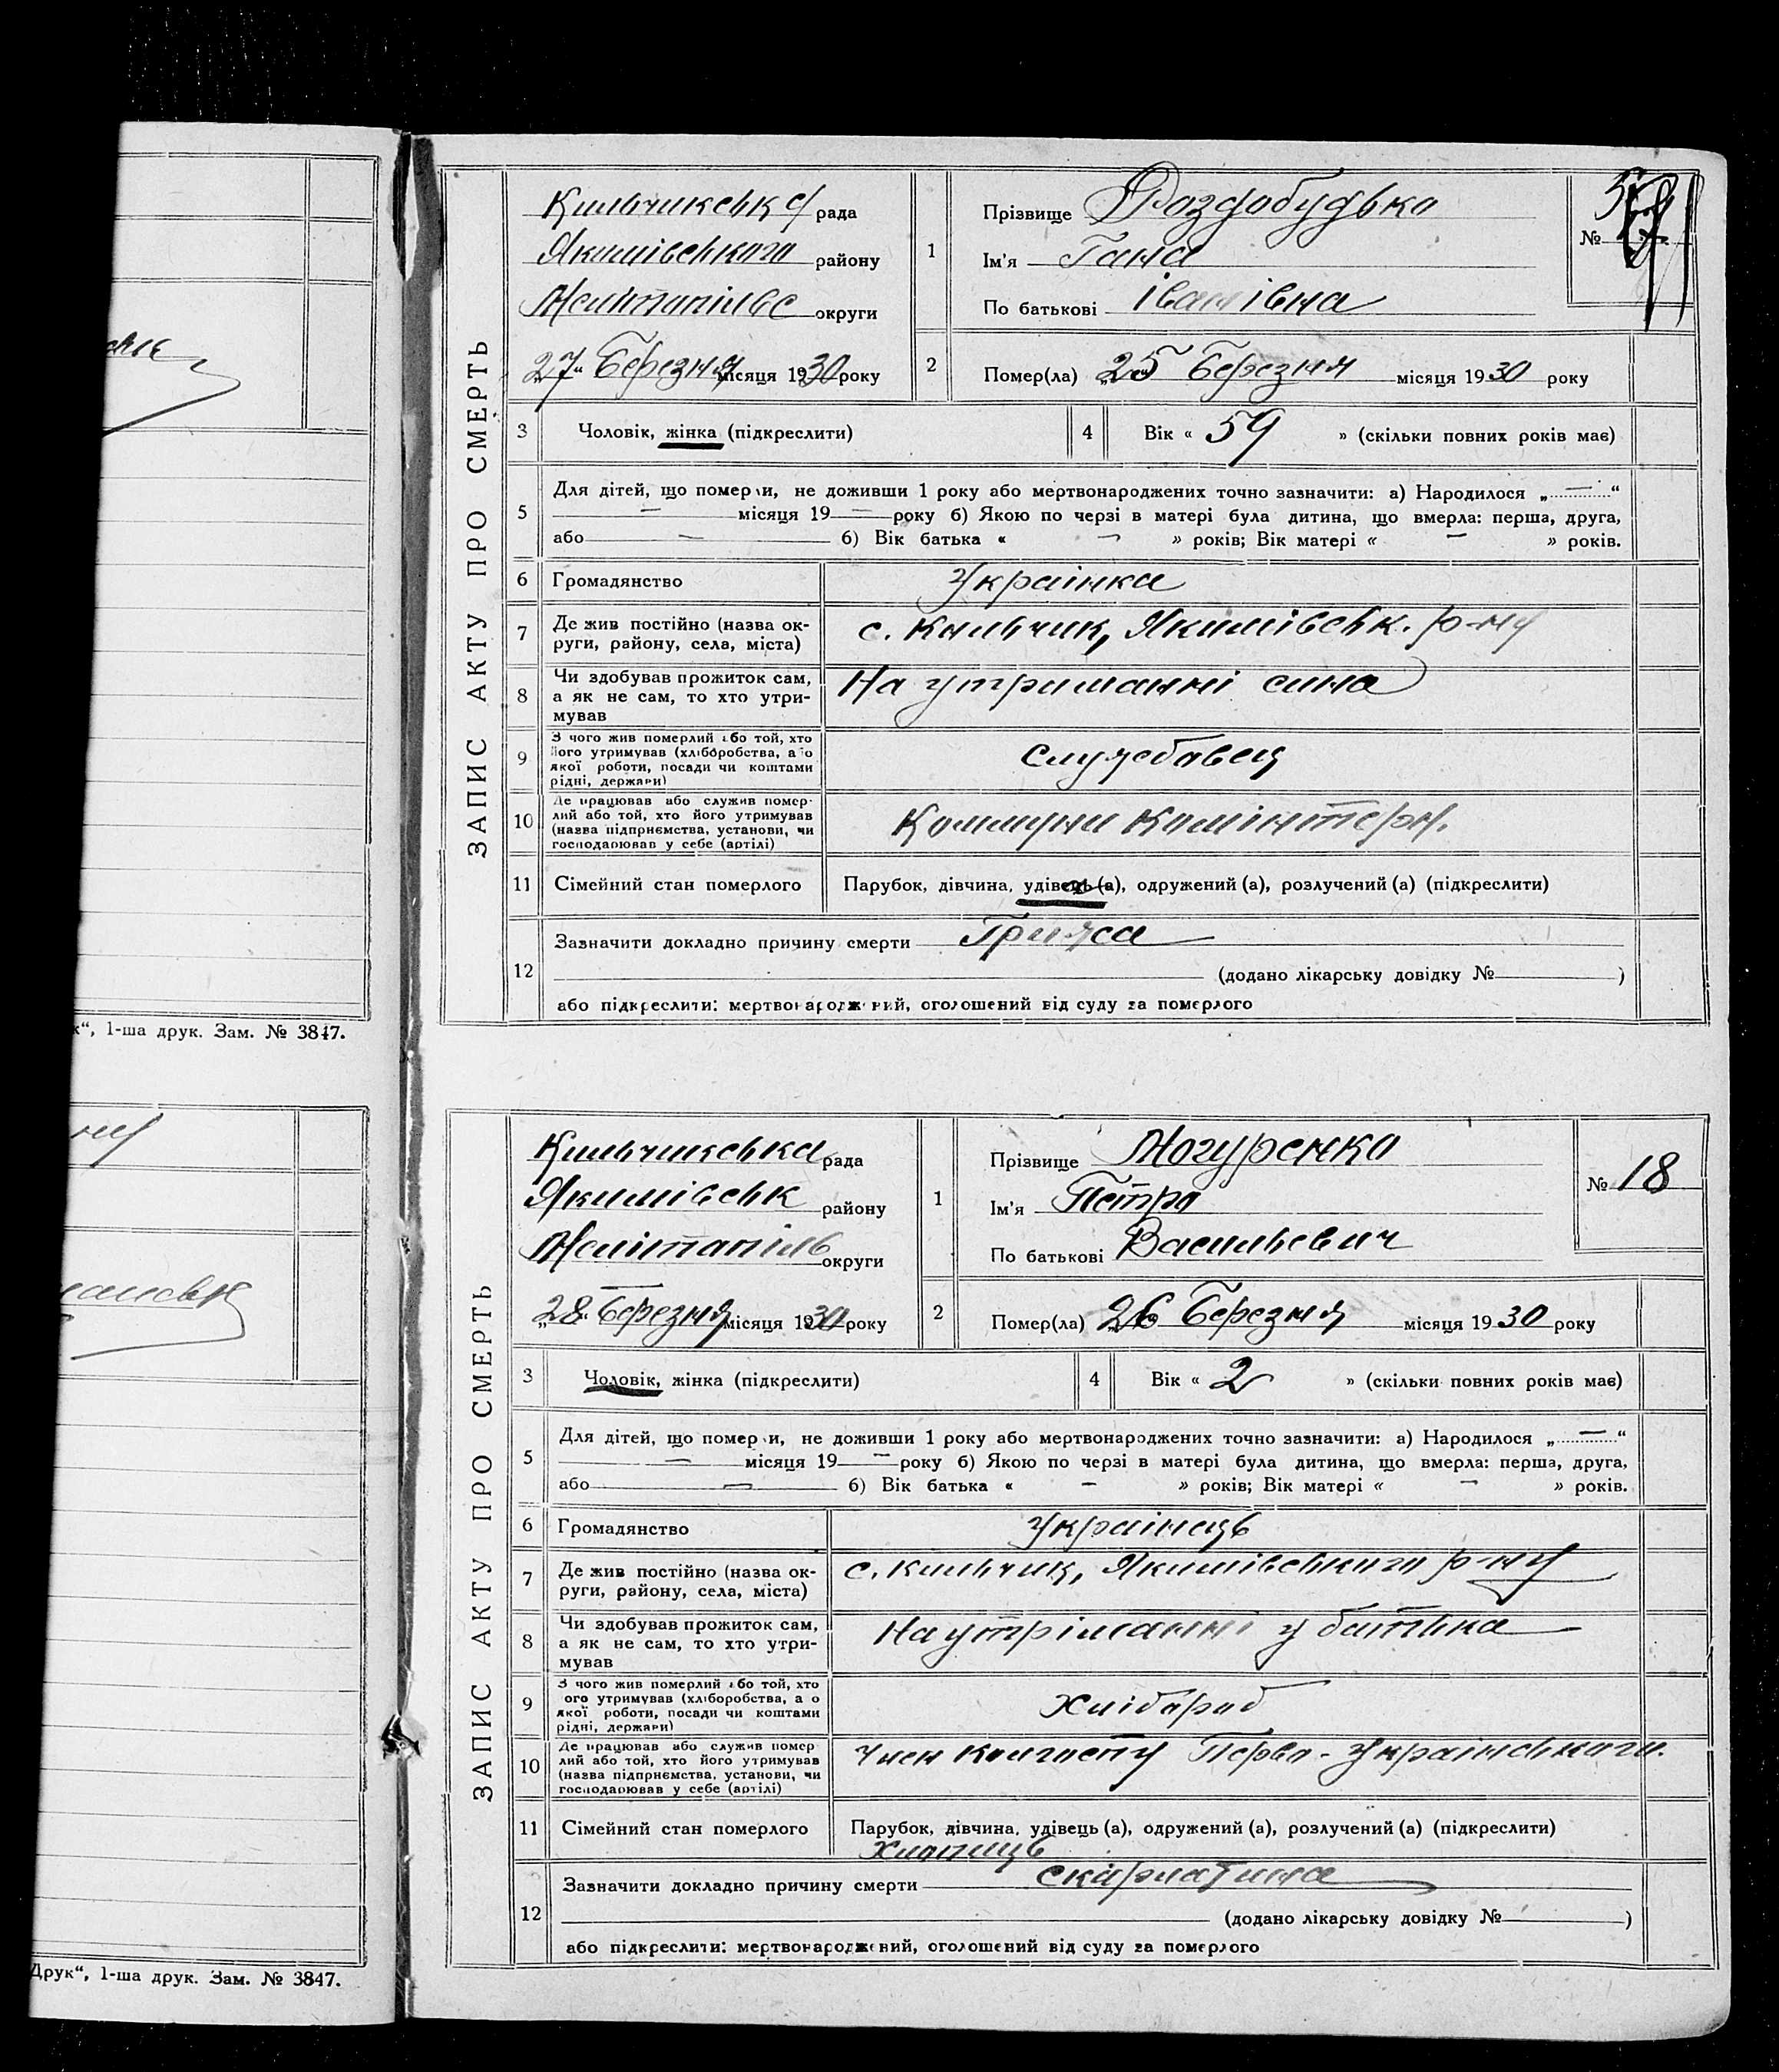 к“, 1-ша друк. Зам. № 3847.
Друк“, 1-ша друк. Зам. № 3847.
ЗАПИС АКТУ ПРО СМЕРТЬ
Кильчикська рада
Якимівського району
Мелітопільс округи
„27“ Березня місяця 1930 року
1
Прізвище Роздобудько
Ім'я Гана
По батькові Іванівна
№
2
Помер(ла) „25“ Березня місяця 1930 року
3
Чоловік, жінка (підкреслити)
4
Вік « 59 » (скільки повних років має)
5
Для дітей, що померли, не доживши 1 року або мертвонароджених точно зазначити: а) Народилося „—“
— місяця 19 — року б) Якою по черзі в матері була дитина, що вмерла: перша, друга,
або — б) Вік батька « — » років; Вік матері « — » років.
6
Громадянство
Українка
7
Де жив постійно (назва ок-
руги, району, села, міста)
с. Кильчик, Якимівськ. р-ну
8
Чи здобував прожиток сам,
а як не сам, то хто утри-
мував
На утриманні сина
9
З чого жив померлий або той, хто
його утримував (хліборобства, або
якої роботи, посади чи коштами
рідні, держави)
Службовец
10
Де працював або служив помер-
лий або той, хто його утримував
(назва підприємства, установи, чи
господарював у себе (артілі)
Коммуни Комінтерн.
11
Сімейний стан померлого
Парубок, дівчина, удівець (а), одружений (а), розлучений (а) (підкреслити)
12
Зазначити докладно причину смерти Грижа
(додано лікарську довідку № )
або підкреслити: мертвонароджений, оголошений від суду за померлого
ЗАПИС АКТУ ПРО СМЕРТЬ
Кильчикська рада
Якимівськ району
Мелітопіль округи
„28“ Березня місяця 1930 року
1
Прізвище Могуренко
Ім'я Петро
По батькові Васильевич
№ 18
2
Помер(ла) „26“ Березня місяця 1930 року
3
Чоловік, жінка (підкреслити)
4
Вік « 2 » (скільки повних років має)
5
Для дітей, що померли, не доживши 1 року або мертвонароджених точно зазначити: а) Народилося „—“
— місяця 19 — року б) Якою по черзі в матері була дитина, що вмерла: перша, друга,
або — б) Вік батька « — » років; Вік матері « — » років.
6
Громадянство
Українець
7
Де жив постійно (назва ок-
руги, району, села, міста)
с. Кильчик, Якимівського р-ну
8
Чи здобував прожиток сам,
а як не сам, то хто утри-
мував
На утріманні у батька
9
З чого жив померлий або той, хто
ого утримував (хліборобства, а о
якої роботи, посади чи коштами
рідні, держави)
Хлібороб
10
Де працював або служив помер
лий або той, хто його утримував
(назва підприємства, установи, чи
господарював у себе (артілі)
Член колгоспу Перво-Українського.
11
Сімейний стан померлого
Парубок, дівчина, удівець (а), одружений (а), розлучений (а) (підкреслити)
Хлопець
12
Зазначити докладно причину смерти скарлатина
(додано лікарську довідку № )
або підкреслити: мертвонароджений, оголошений від суду за померлого